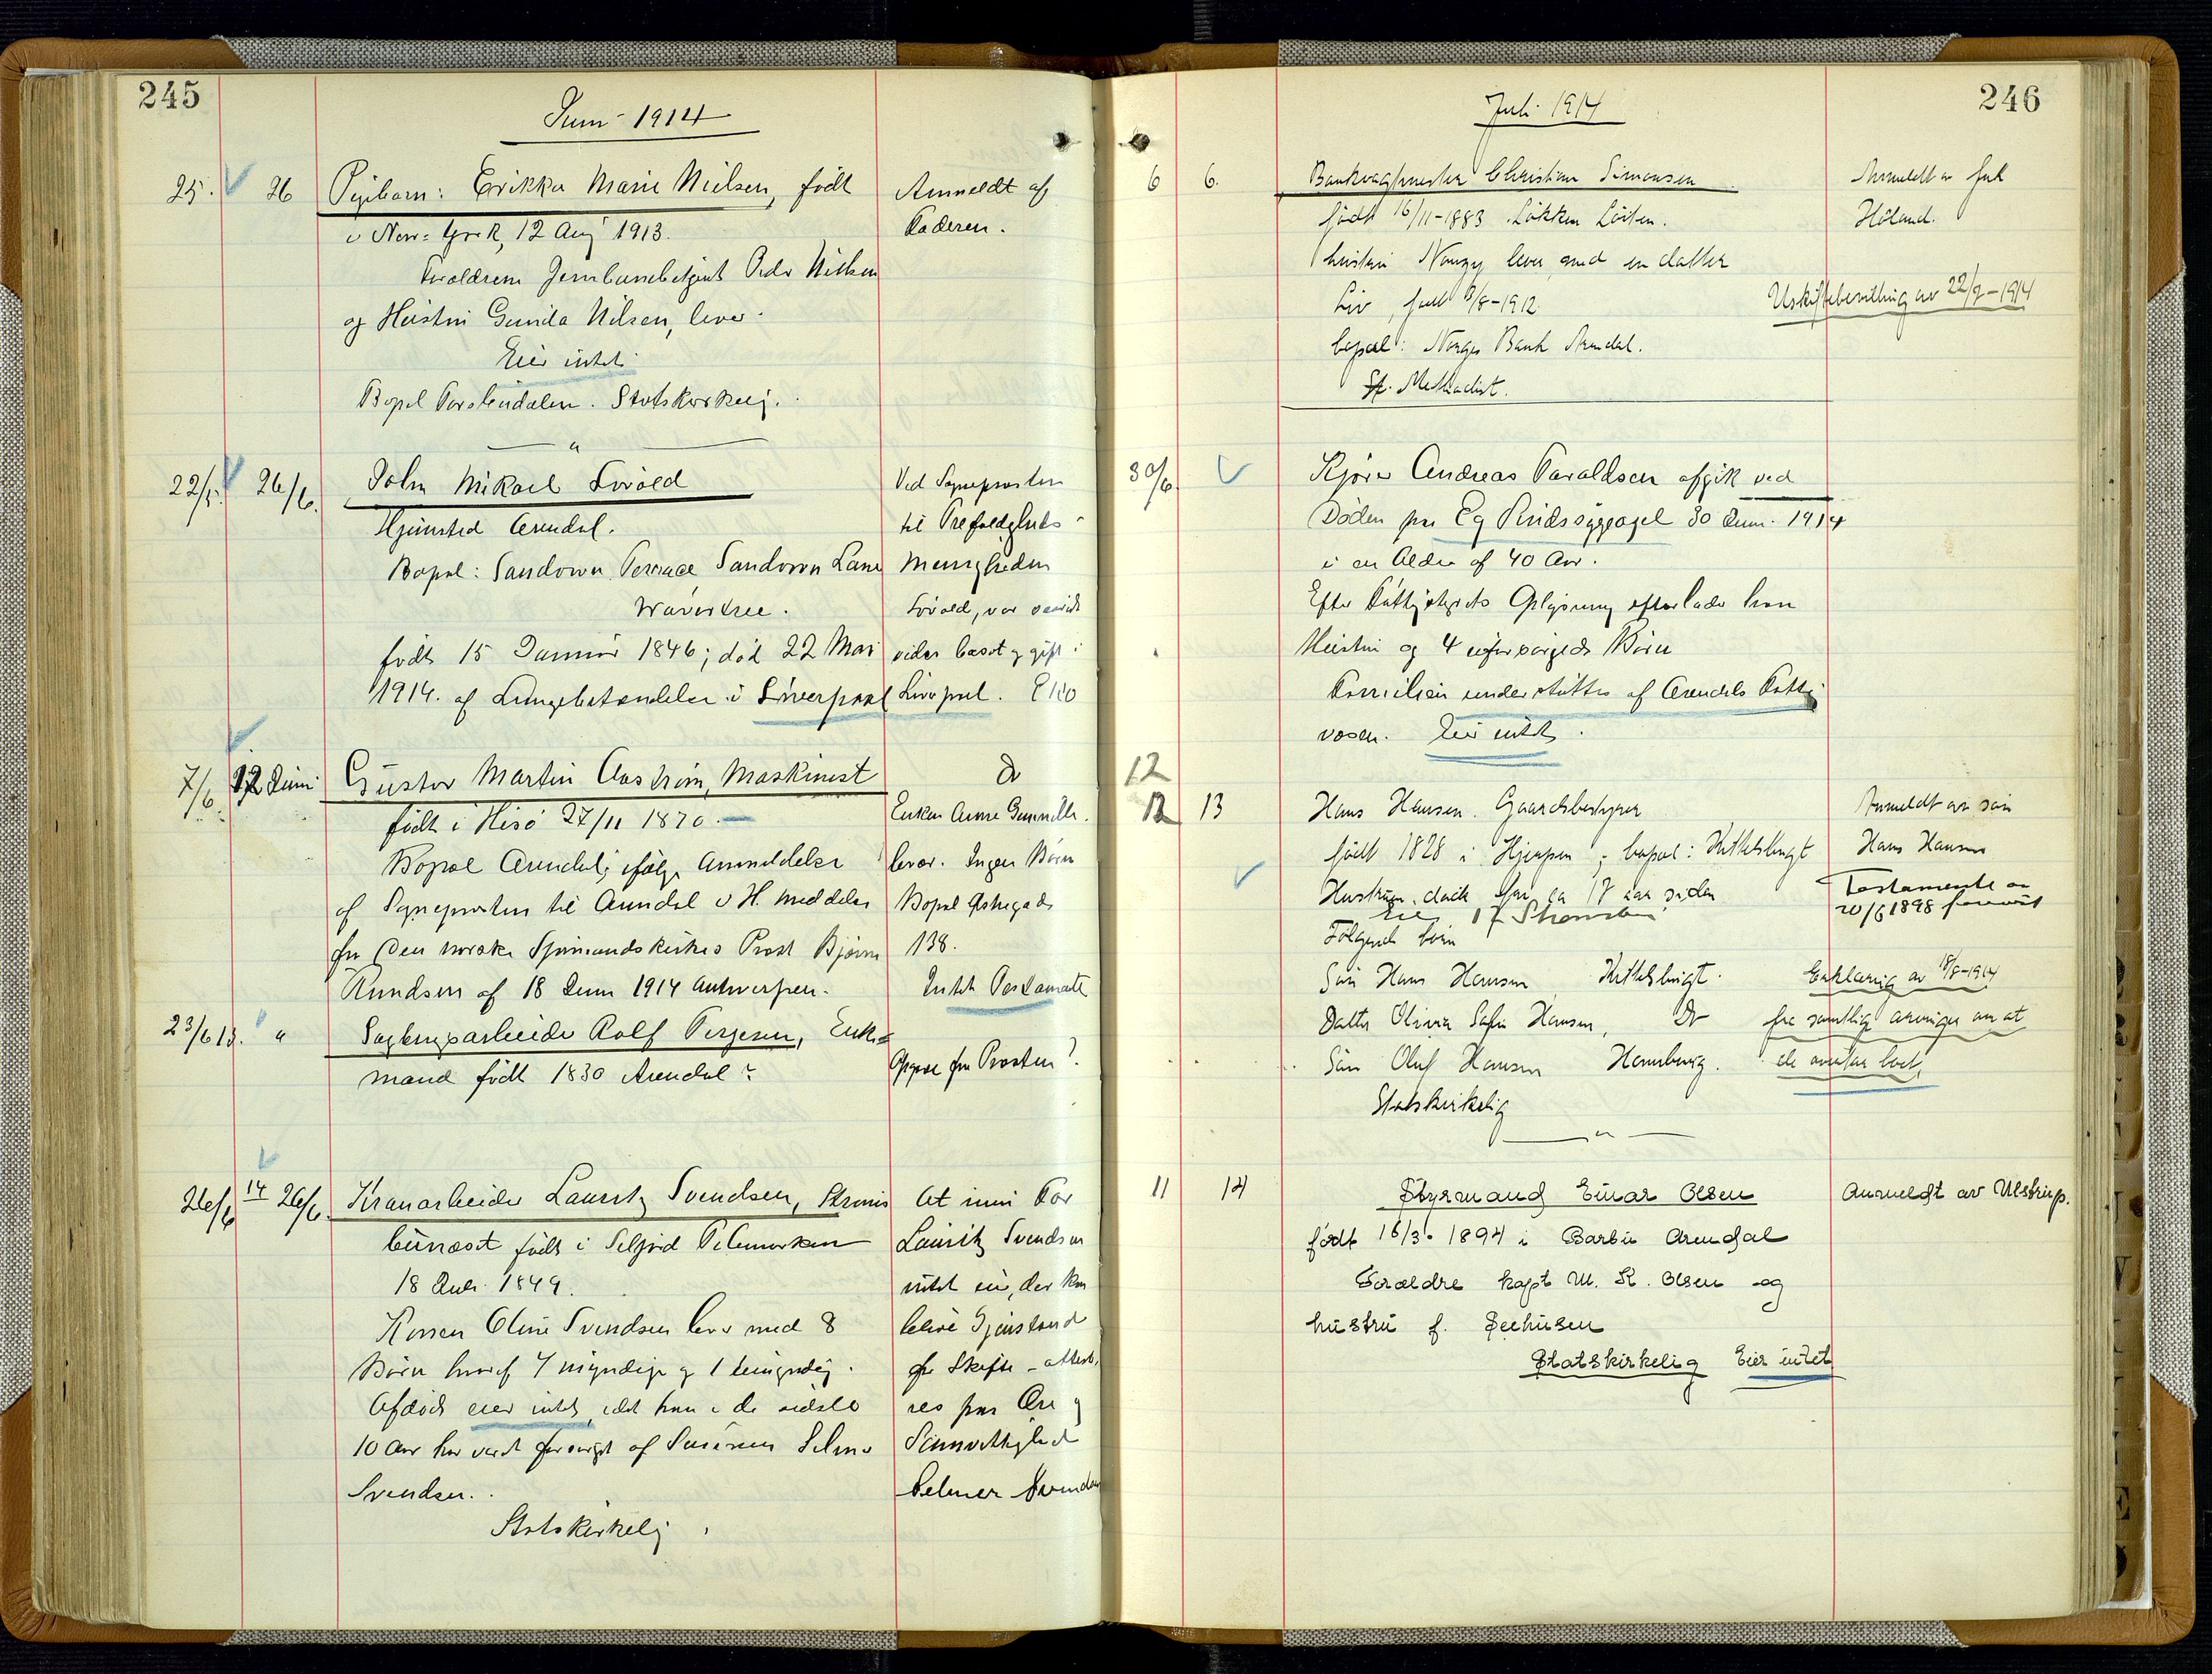 245
Juni 1914
25. 26 Pigebarn: Erikka Marie Nielsen, født
i New-York, 12 Aug 1913.
Forældrene Jernbanebetjent Peder Nielsen
og Hustru Gunda Nilsen, lever.
Eier intet.
Bopel Torsbudalen. Statskirkelig.
Anmeldt af
Faderen.
22/5. 26/6. John Mikael Svøld
Hjemsted Arendal.
Bopæl: Sandown Terrace Sandown Lane
Wavertree.
født 15 Januar 1846; død 22 Mai
1914. af Lungebetændelse i Liverpool
Ved Sognepresten
til Trefoldigheds
Menigheden
Svøld, var
viden bosat og gift i
Liverpool.
7/6. 12 Juni Gustav Martin Aastrøm, Maskinist
født i Hisø 27/11 1870.
Bopæl Arendal; ifølge Anmeldelse
af Sognepresten til Arendal v H. meddelse
fra Den norske Sjømandskirkes Prest Bjørn
Knudsen af 18 Juni 1914 Antwerpen.
Do
Enken Anne Gunnille.
lever. Ingen Børn
Bopæl Østregade
138.
Intet Testamente
23/6 13. " Sagbrugsarbeider Rolf Terjesen, Enke=
mand født 1830 Arendal?
Opgave fra Presten?
26/6 14 26/6. Kranarbeider Lauritz Svendsen, Strøms
bunæset født i Seljord Telemarken
18 Juli 1849.
Konen Oline Svendsen lever med 8
Børn hvoraf 7 myndige og 1 umyndig.
Afdøde eier intet, idet han i de sidste
10 Aar har været forsørget af Sønnen Selmer
Svendsen.
Statskirkelig.
At min Far
Lauritz Svendsen
intet eier, der kan
blive Gjenstand
for Skifte - attest,
res paa Ære og
Samvittighed
Selmer Svendsen
246
Juli 1914
6 6. Bankvagtmester Christian Simonsen
født 16/11-1883 Løkken Løiten.
hustru Nanzy lever med en datter
Liv, født 3/8-1912
bopæl: Norges Bank Arendal.
Methodist.
Anmeldt av frk
Høland.
Uskiftebevilling av 22/7-1914
30/6. Kjører Andreas Taraldsen afgik ved
Døden paa Eg Sindssygeasyl 30 Juni 1914
i en Alder af 40 Aar.
Efter Fattigstyrets Oplysning efterlader han
Hustru og 4 uforsørgede Børn
Familien understøttes af Arendals Fattig
væsen. Eier intet.
12
12 13 Hans Hansen. Gaardsbestyrer
født 1828 i Hjerpen, bopæl: Kittelsbugt
Hustrun døde for ca 17 aar siden
Følgende børn
Søn Hans Hansen Kittelsbugt.
Datter Olivia Sofie Hansen, Do
Søn Oluf Hansen Hamburg.
Statskirkelig
Anmeldt av søn
Hans Hansen
Testamente av
20/6 1898
Erklæring av 18/8-1914
fra samtlige arvinger om at
de overtar boet,
11 14 Styrmand Einar Olsen
født 16/3. 1894 i Barbu Arendal
Forældre kapt M. K. Olsen og
hustru f. Seehusen
Statskirkelig Eier intet
Anmeldt av Ulstrup.